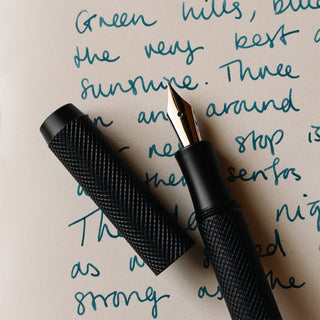 Green hills, blue
the very best
sunshine. Three
an around
ner stop is
the sentos
The nig
as
strong as the